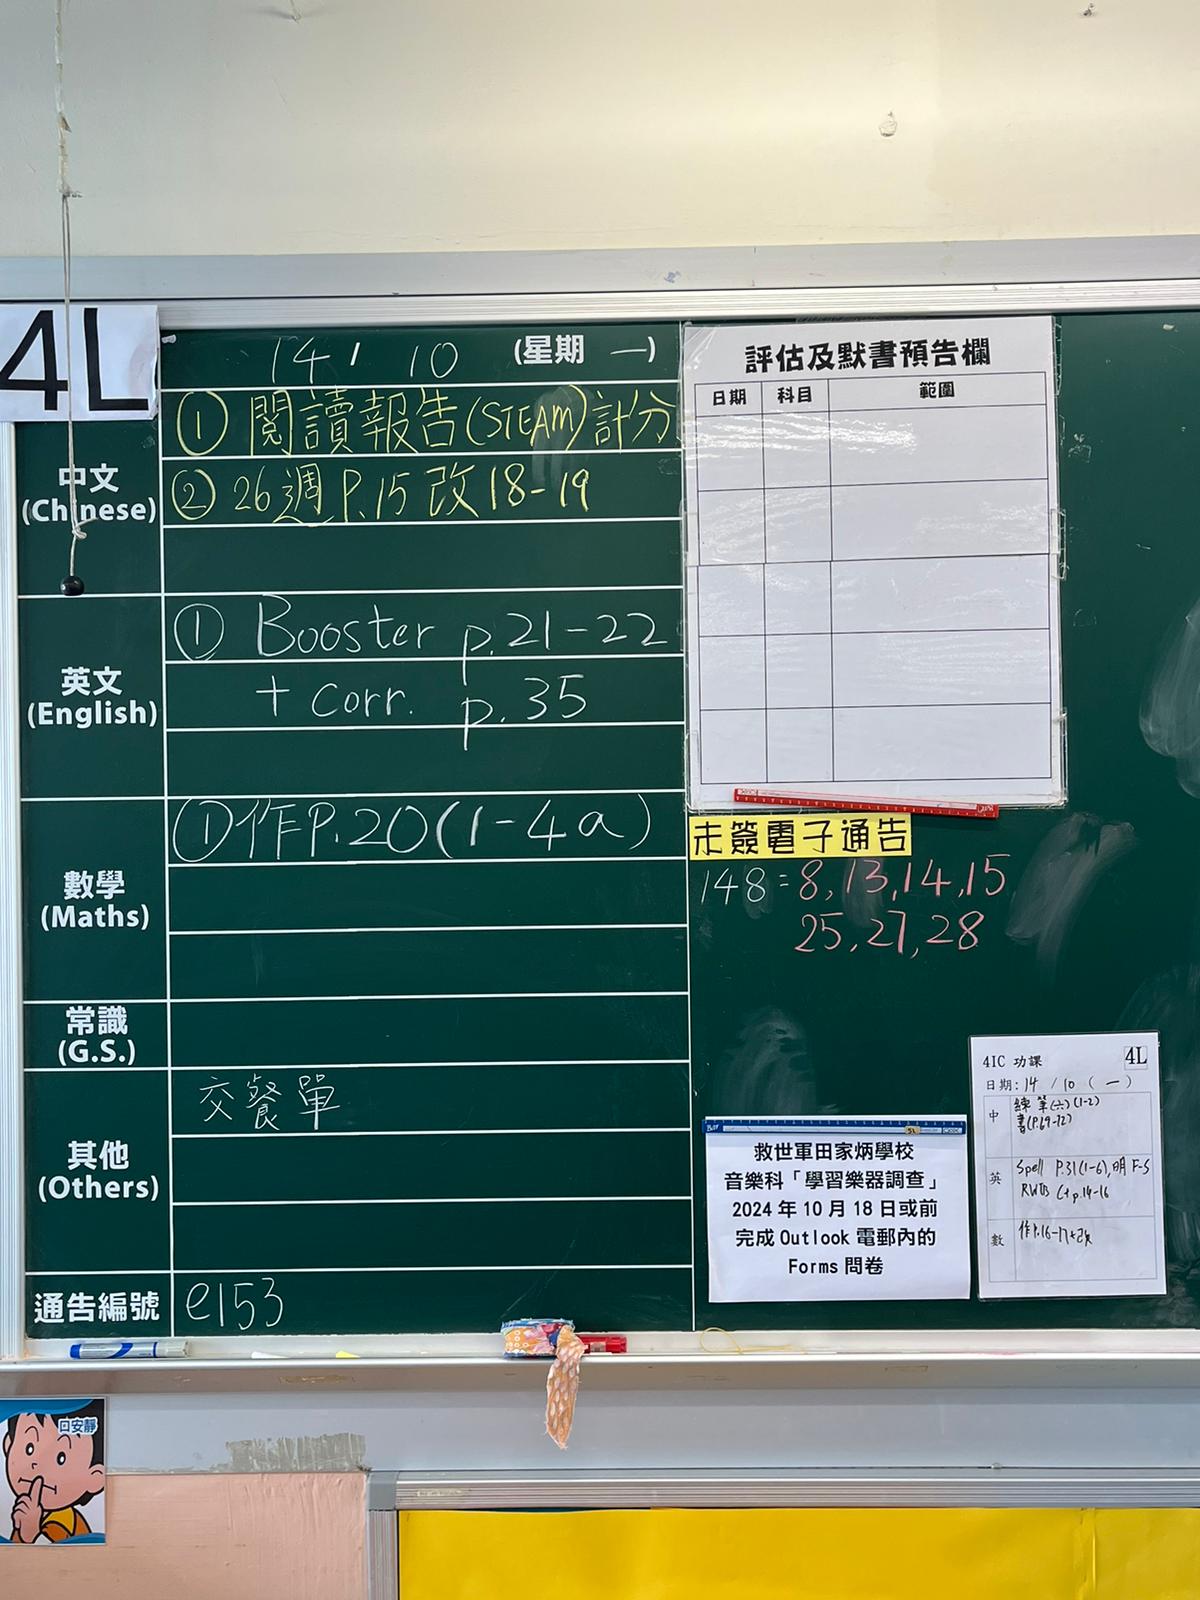 4L
14 / 10 (星期 一)
中文
(Chinese)
① 閱讀報告(STEAM)計分
② 26週 P.15 改 18-19
英文
(English)
① Booster p.21-22
+ corr. p.35
數學
(Maths)
①作P.20(1-4a)
常識
(G.S.)
其他
(Others)
交餐單
通告編號
e153
評估及默書預告欄
日期 科目 範圍
未簽電子通告
148=8,13,14,15
25,27,28
救世軍田家炳學校
音樂科「學習樂器調查」
2024 年 10 月 18 日或前
完成 Outlook 電郵內的
Forms 問卷
4IC 功課 4L
日期: 14 / 10 ( 一 )
中
練筆(六)(1-2)
書(P.69-72)
英
Spell P.31(1-6), 明 F-S
RWTB p.14-16
數
作P.16-17+改
口安靜